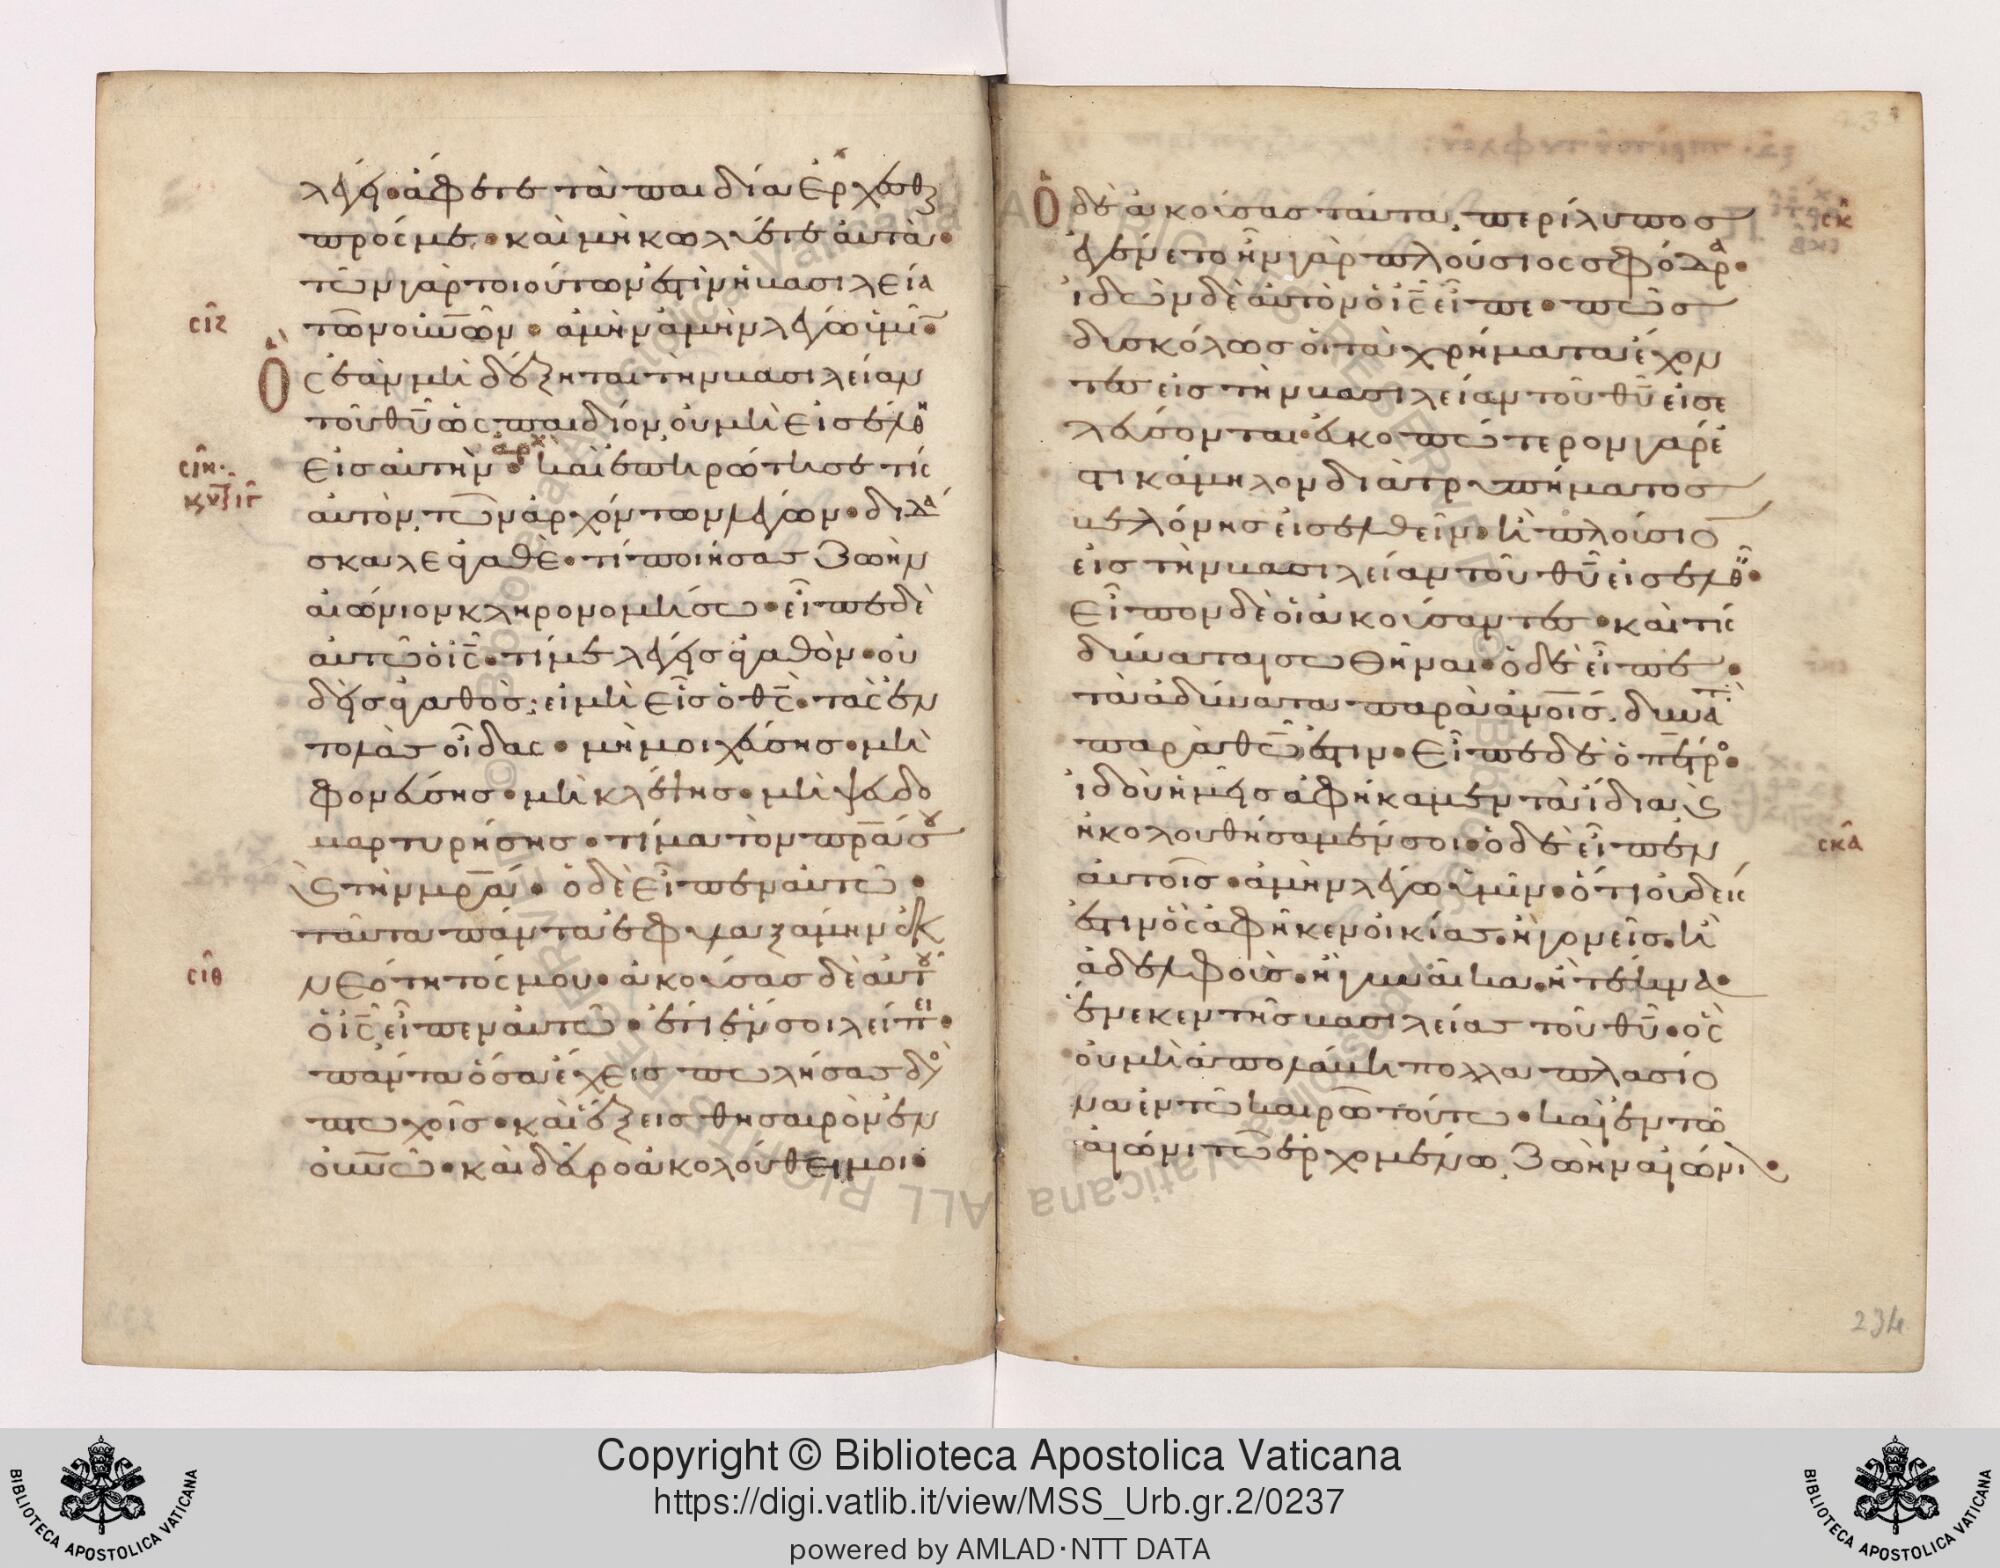 λέγει· ἄφετε τὰ παιδία ἔρχεσθ
πρός με· καὶ μὴ κωλύετε αὐτὰ·
τῶν γὰρ τοιούτων ἐστὶν ἡ βασιλεία
σιζ
τῶν οὐνῶν· ἀμὴν ἀμὴν λέγω ὑμῖ·
Ὃς ἐὰν μὴ δέξηται τὴν βασιλείαν
τοῦ θῦ ὡς παιδίον, οὐ μὴ εἰσέλθη
σιη·
εἰς αὐτὴν· καὶ ἐπηρώτησέ τίς
αὐτὸν τῶν ἀρχόντων λέγων· διδά
σκαλε ἀγαθὲ· τί ποιήσας ζωὴν
αἰώνιον κληρονομήσω· εἶπε δὲ
αὐτῶ ὁ ις· τί με λέγεις ἀγαθὸν· οὐ
δεὶς ἀγαθὸς· εἰ μὴ εἷς ὁ θς· τὰς ἐν
τολὰς οἶδας· μὴ μοιχεύσης· μὴ
φονεύσης· μὴ κλέψης· μὴ ψευδο
μαρτυρήσης· τίμα τὸν πρα σου
καὶ τὴν μρα· ὁ δὲ εἶπεν αὐτῶ·
ταῦτα πάντα ἐφυλαξάμην ἐκ
σιθ
νεότητός μου· ἀκούσας δὲ αὐτοῦ
ὁ ις εἶπεν αὐτῶ· ἔτι ἕν σοι λείπει·
πάντα ὅσα ἔχεις πώλησας δὸς
πτωχοῖς· καὶ ἕξεις θησαυρὸν ἐν
οὐνῶ· καὶ δεῦρο ἀκολούθει μοι·
Ὁ δὲ ἀκούσας ταῦτα, περίλυπος
σκ
ἐγένετο ἦν γὰρ πλούσιος σφόδρα·
ἰδὼν δὲ αὐτὸν ὁ ις εἶπε· πῶς
δυσκόλως οἱ τὰ χρήματα ἔχον
τες εἰς τὴν βασιλείαν τοῦ θῦ εἰσε
λεύσονται· εὐκοπώτερον γάρ ἐ
στι κάμηλον διὰ τρυπήματος
βελόνης εἰσελθεῖν· ἢ πλούσιον
εἰς τὴν βασιλείαν τοῦ θῦ εἰσελθεῖν·
Εἶπον δὲ οἱ ἀκούσαντες· καὶ τίς
δύναται σωθῆναι· ὁ δὲ εἶπε·
τὰ ἀδύνατα παρὰ ἀνοις, δυνατὰ
παρὰ θῶ ἐστιν· Εἶπε δὲ ὁ πέτρος·
ἰδοὺ ἡμεῖς ἀφήκαμεν τὰ ἴδια, καὶ
ἠκολουθήσαμέν σοι· ὁ δὲ εἶπεν
σκα
αὐτοῖς· ἀμὴν λέγω ὑμῖν· ὅτι οὐδείς
ἐστιν ὃς ἀφῆκεν οἰκίας· ἢ γονεῖς· ἢ
ἀδελφοὺς· ἢ γυναῖκα· ἢ τέκνα·
ἕνεκεν τῆς βασιλείας τοῦ θῦ· ὃς
οὐ μὴ ἀπολάβη πολλαπλασίο
να ἐν τῶ καιρῶ τούτω· καὶ ἐν τῶ
αἰῶνι τῶ ἐρχομένω, ζωὴν αἰώνι·
234
Copyright © Biblioteca Apostolica Vaticana
https://digi.vatlib.it/view/MSS_Urb.gr.2/0237
powered by AMLAD·NTT DATA
BIBLIOTECA APOSTOLICA VATICANA
BIBLIOTECA APOSTOLICA VATICANA